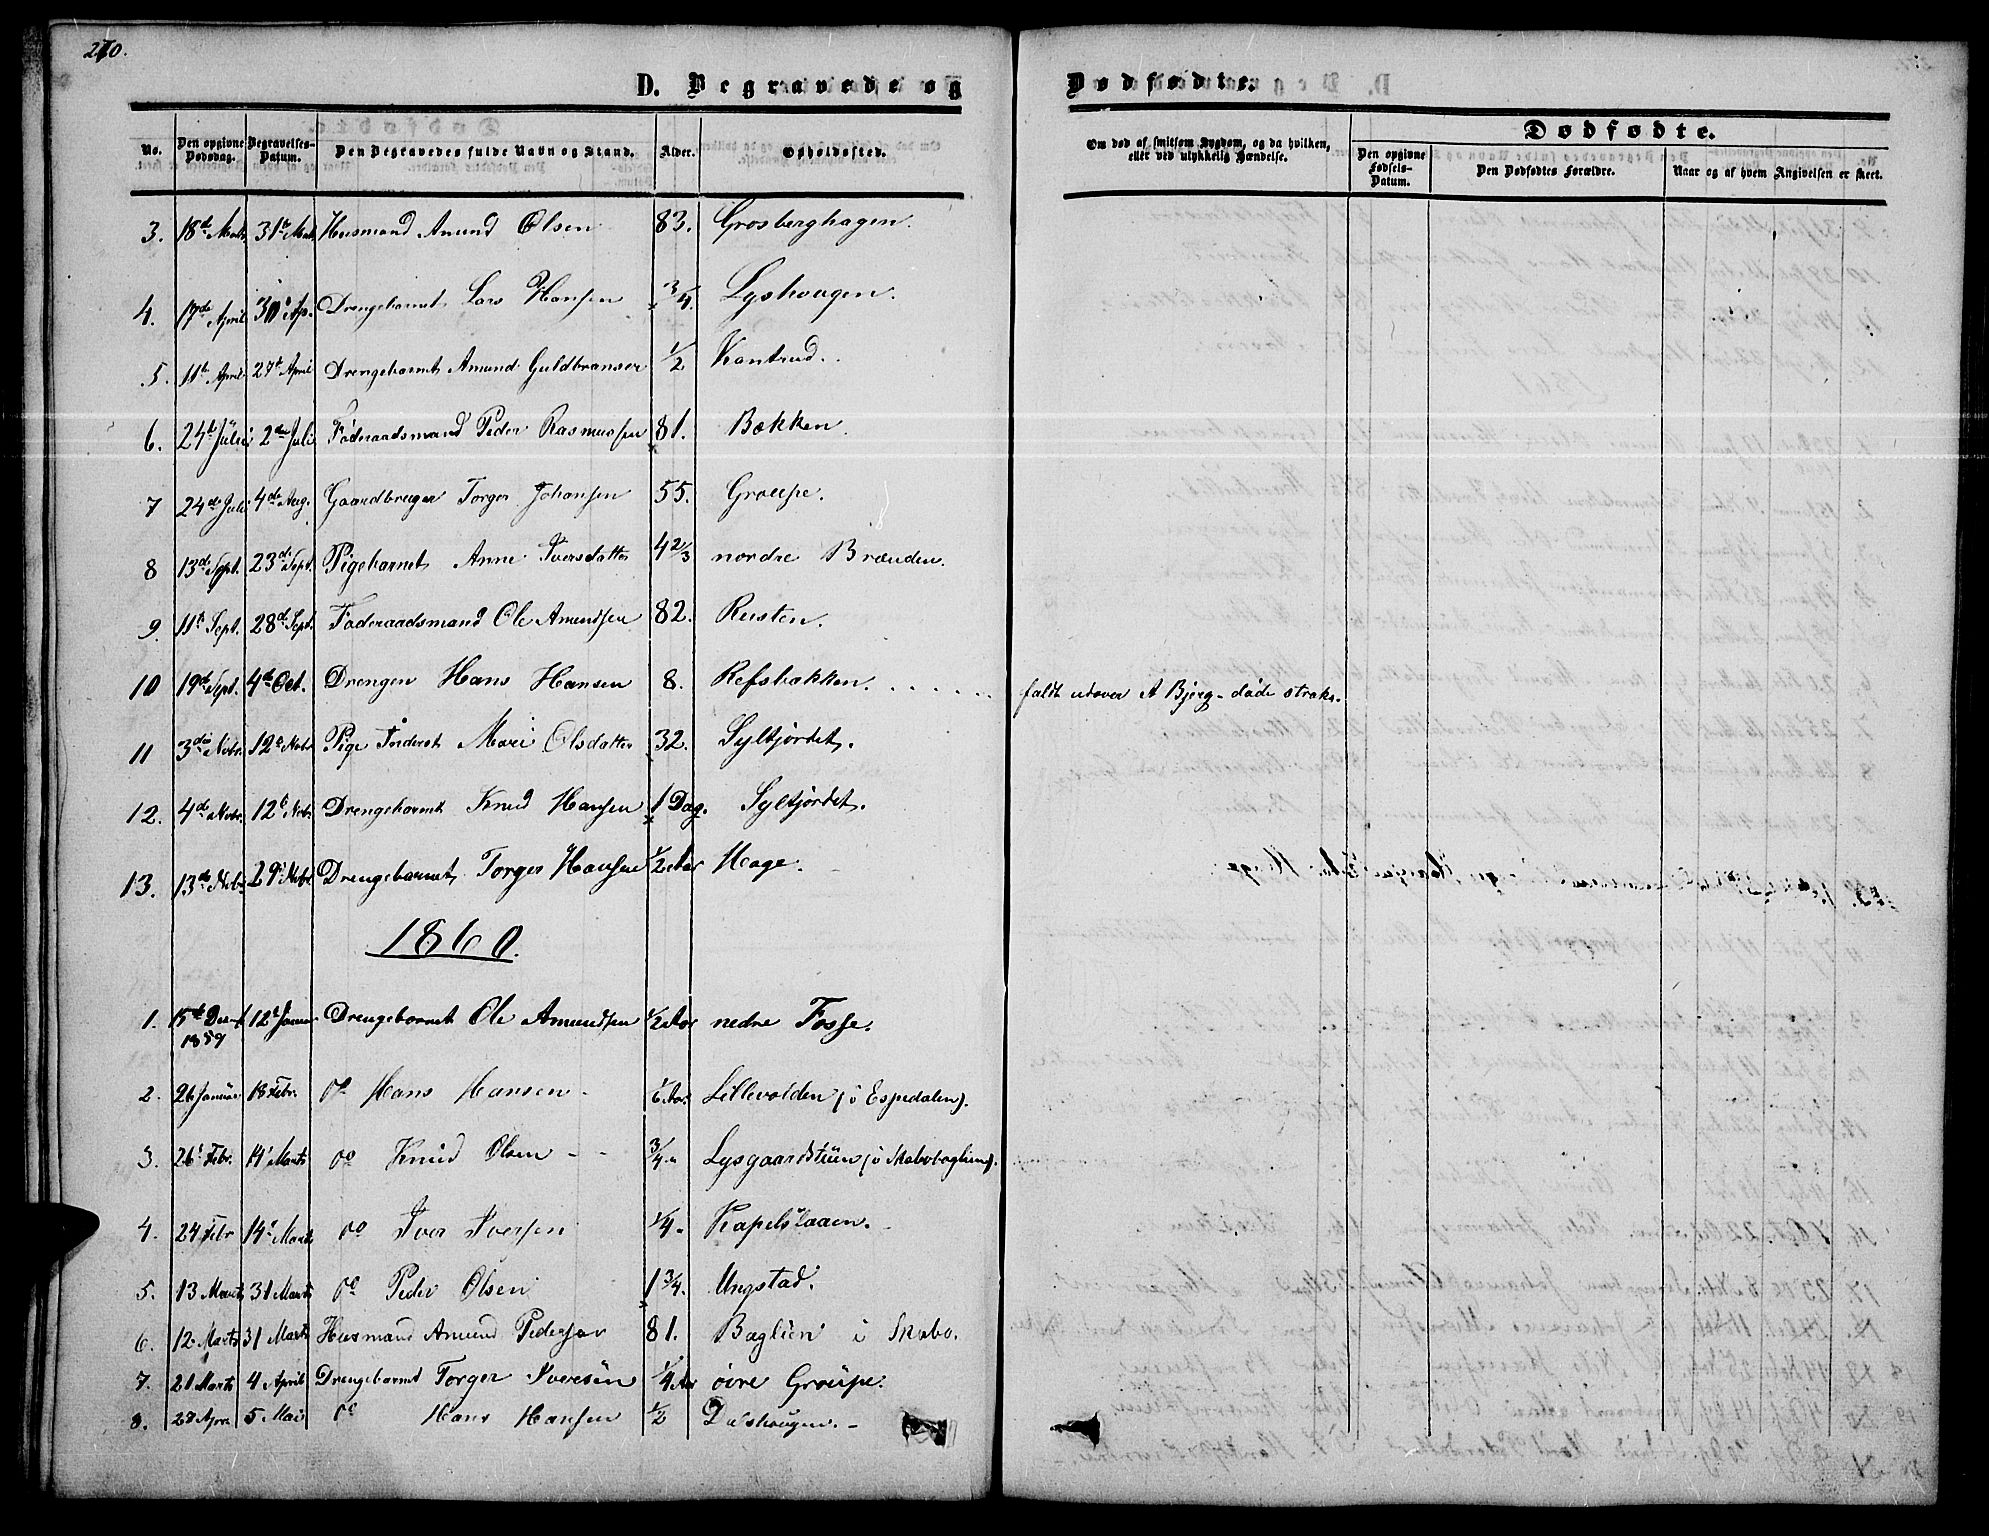 210.
D. Begravede og Dødfødte.
No. Den opgivne Dødsdag. Begravelses-Datum. Den Begravedes fulde Navn og Stand. Alder. Opholdssted. Om død af smitsom Sygdom, og da hvilken, eller ved ulykkelig Hændelse.
Dødfødte.
Den opgivne Fødsels-Datum. Den Dødfødtes Forældre. Naar og af hvem Angivelsen er skeet.
3. 18de Marts 31te Marts Husmand Amund Olsen 83. Grosberghagen.
4. 17de April 30te Apr. Drengebarnet Lars Hansen 3/4. Lyshougen.
5. 11te April 27de April Drengebarnet Amund Guldbransen 1/2 Kantrud.
6. 24de Juli 2den Juli Føderaadsmand Peder Rasmussen 81. Bækken.
7 24de Juli 4de Aug. Gaardbruger Torger Johansen 55. Groupe.
8 13de Sept. 23de Sept. Pigebarnet Anne Iversdatter 4 2/3 nordre Brænden.
9. 11te Sept. 28de Sept. Føderaadsmand Ole Amundsen 82. Rusten.
10 19de Sept. 4de Oct. Drengen Hans Hansen 8. Refsbækken. . . . . . . faldt udover et Bjerg - døde straks.
11 3die Novbr. 12te Novbr Pige Inderst Mari Olsdatter 32. Syltjordet.
12. 4de Novbr. 12te Novbr Drengebarnet Knud Hansen 1 Dag. Syltjordet.
13. 13de Novbr. 29de Novbr Drengebarnet Torger Hansen 1/2 Aar Hage.
1860.
1. 15de Decb 1859 12te Januar Drengebarnet Ole Amundsen 1/2 Aar nedre Fosse.
2. 26 Januar 18 Febr. do Hans Hansen - 1/6 Aar. Lillevolden (i Espedalen).
3. 26 Febr. 14 Marts do Knud Olsen - - 3/4 " Lysgaardstuen (i Skabobaglien).
4. 24 Febr 14 Marts do Iver Iversen 1/4 " Kapelslaaen.
5. 13 Marts 31 Marts do Peder Olsen 1 3/4. Ungstad.
6. 12 Marts 31 Marts Husmand Amund Pedersen 81. Baglien i Skabo.
7. 21 Marts 4 April Drengebarnet Torger Iversen 1/4 Aar øvre Groupe.
8. 27 Apr. 5 Mai do Hans Hansen 1/2 Dalshougen. -